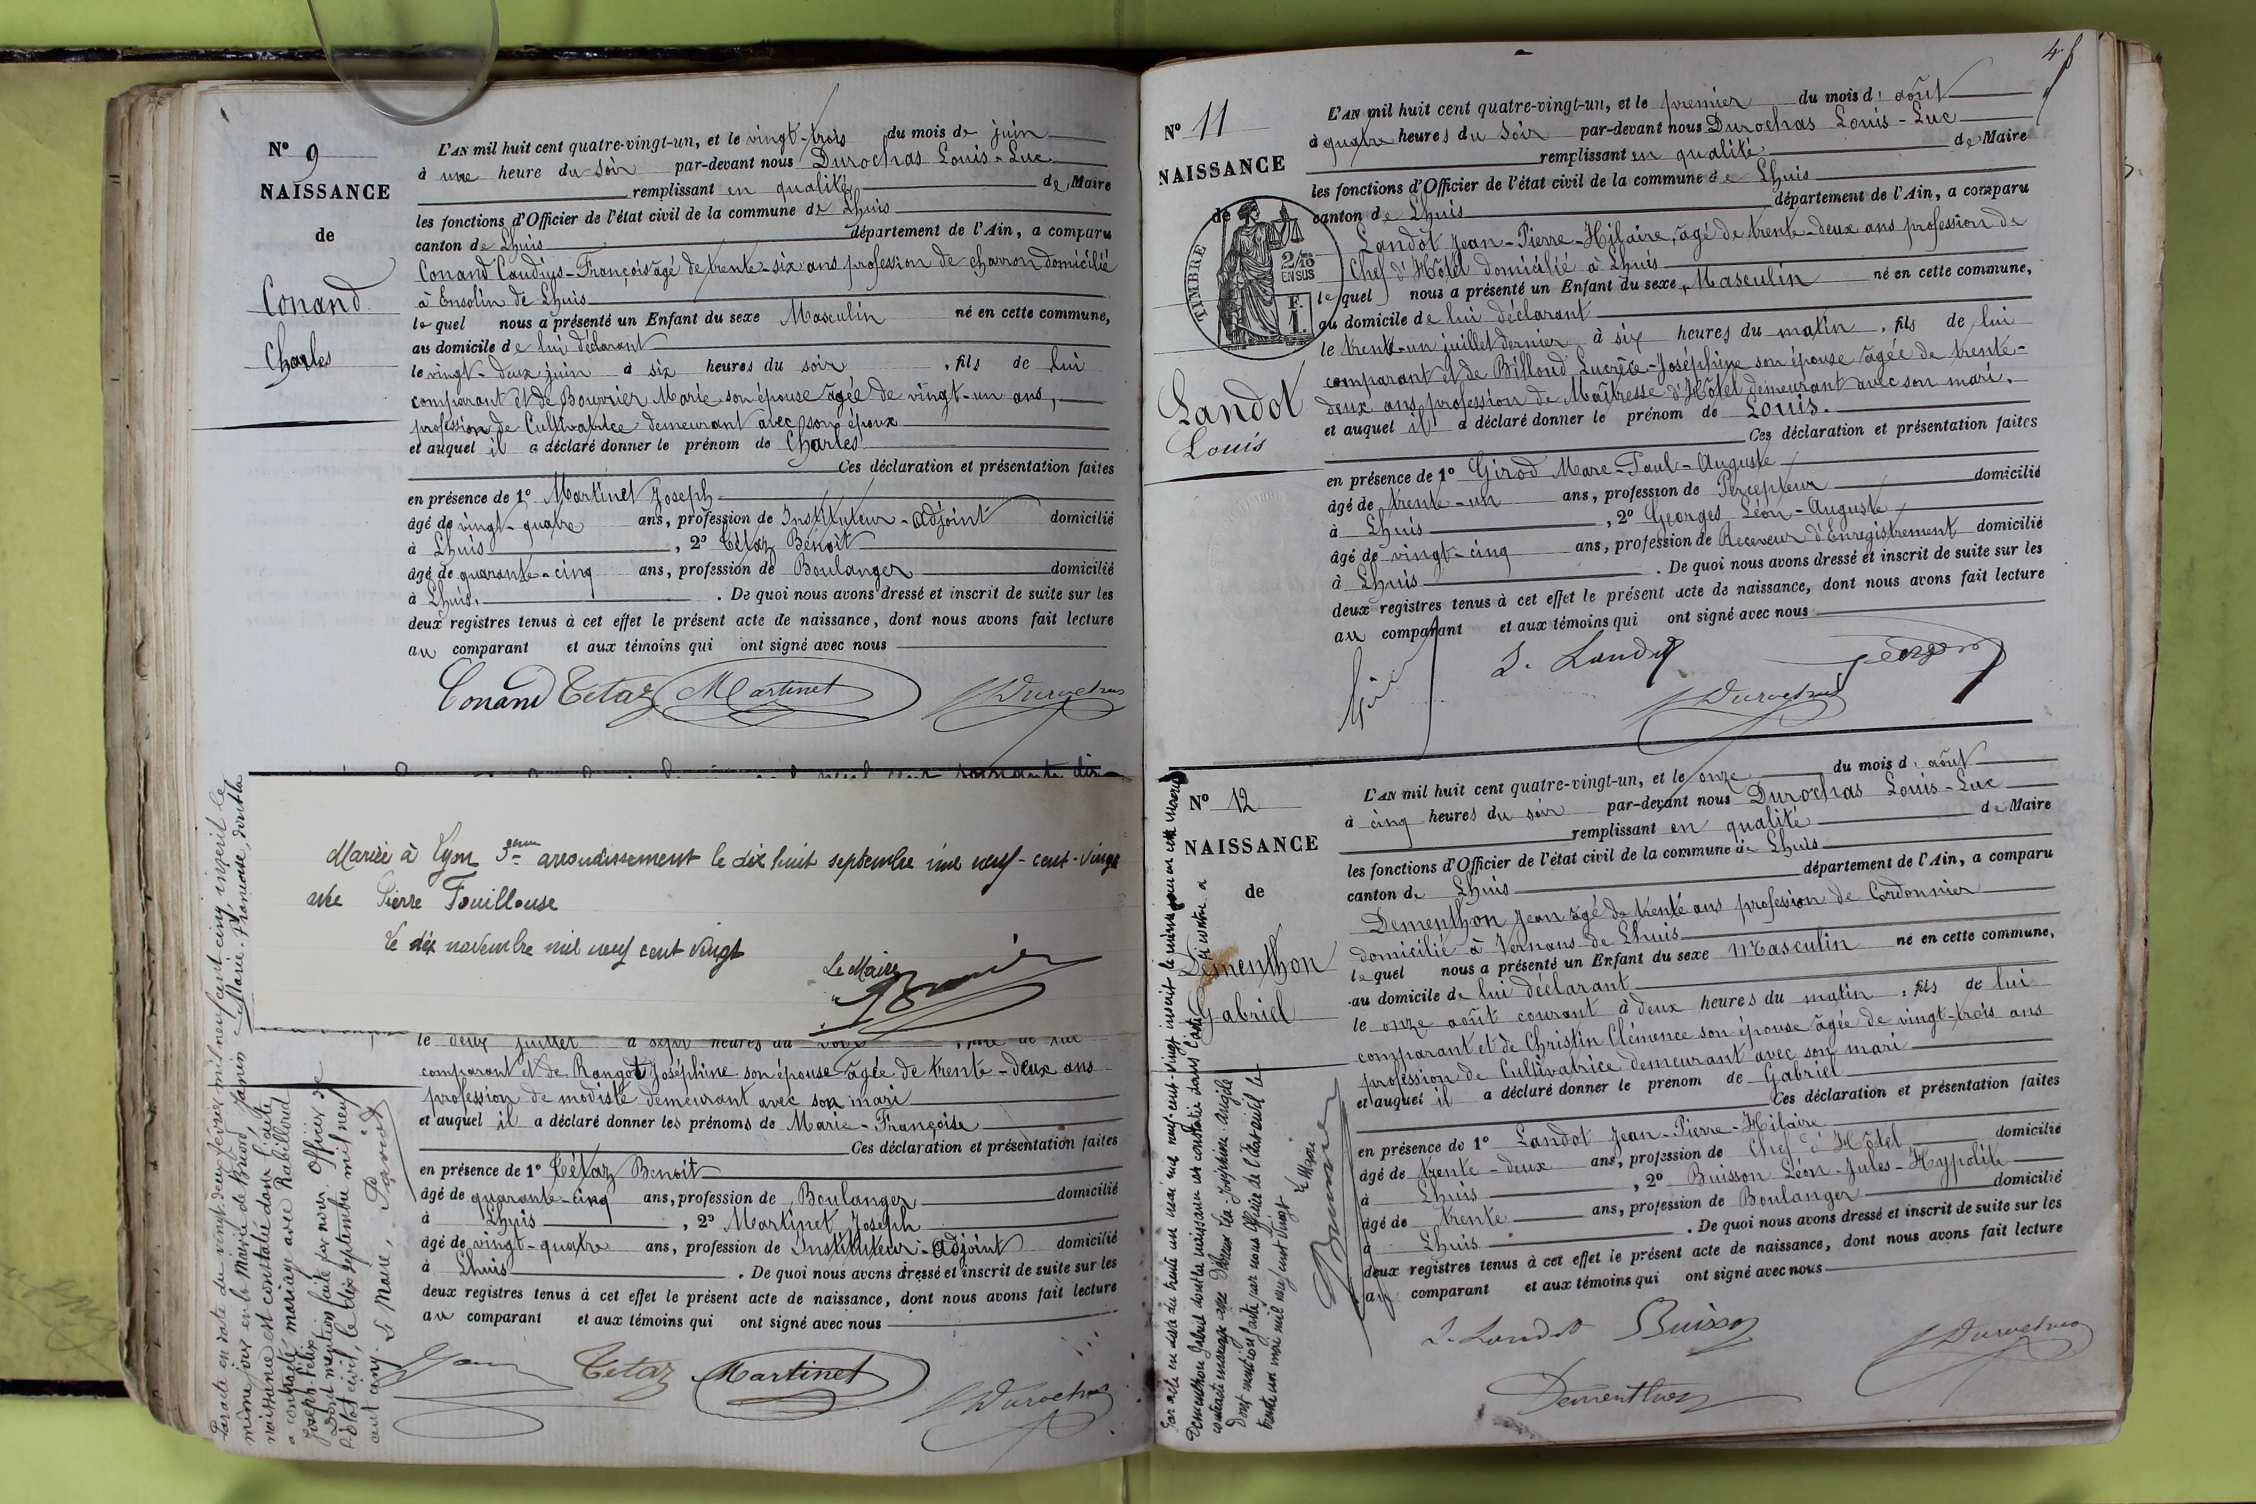 N° 9
NAISSANCE
de
Conand
Charles
L'AN mil huit cent quatre-vingt-un, et le vingt-trois du mois de juin
à une heure du soir par-devant nous Durochas Louis-Luc
remplissant en qualité de Maire
les fonctions d'Officier de l'état civil de la commune de Lhuis
canton de Lhuis département de l'Ain, a comparu
Conand Caudius-François âgé de trente-six ans profession de charron domicilié
à Ensolin de Lhuis
lequel nous a présenté un Enfant du sexe Masculin né en cette commune,
au domicile de lui déclarant
le vingt-deux juin à six heures du soir, fils de lui
comparant et de Bouvrier Marie son épouse âgée de vingt-un ans,
profession de Cultivatrice demeurant avec son époux
et auquel il a déclaré donner le prénom de Charles
Ces déclaration et présentation faites
en présence de 1° Martinet Joseph
âgé de vingt-quatre ans, profession de Instituteur-adjoint domicilié
à Lhuis, 2° Tétaz Benoit
âgé de quarante-cinq ans, profession de Boulanger domicilié
à Lhuis. De quoi nous avons dressé et inscrit de suite sur les
deux registres tenus à cet effet le présent acte de naissance, dont nous avons fait lecture
au comparant et aux témoins qui ont signé avec nous
Conand Tétaz Martinet Durochas
Mariée à Lyon 3eme arrondissement le dix huit septembre mil neuf-cent-vingt
avec Pierre Fouillouse
Le dix novembre mil neuf cent vingt
Le Maire
le deux juillet à sept heures du
comparant et de Rangot Joséphine son épouse âgée de trente-deux ans
profession de modiste demeurant avec son mari
et auquel il a déclaré donner les prénoms de Marie-Françoise
Ces déclaration et présentation faites
en présence de 1° Tétaz Benoit
âgé de quarante-cinq ans, profession de Boulanger domicilié
à Lhuis, 2° Martinet Joseph
âgé de vingt-quatre ans, profession de Instituteur-adjoint domicilié
à Lhuis. De quoi nous avons dressé et inscrit de suite sur les
deux registres tenus à cet effet le présent acte de naissance, dont nous avons fait lecture
au comparant et aux témoins qui ont signé avec nous
Tétaz Martinet Durochas
Par acte en date du vingt-deux février mil neuf cent cinq, inscrit le
même jour en la Mairie de Briord, Janin Marie-Françoise, dont la
naissance est constatée dans l'acte
a contracté mariage avec Rabilloud
Joseph-Félix
Dont mention faite par nous Officier de
l'état civil, le dix septembre mil neuf
cent cinq. Le Maire,
48
N° 11
NAISSANCE
de
TIMBRE
2/10 EN SUS
F. 1.
Landot
Louis
L'AN mil huit cent quatre-vingt-un, et le premier du mois d'août
à quatre heures du soir par-devant nous Durochas Louis-Luc
remplissant en qualité de Maire
les fonctions d'Officier de l'état civil de la commune de Lhuis
canton de Lhuis département de l'Ain, a comparu
Landot Jean-Pierre-Hilaire, âgé de trente-deux ans profession de
Chef d'Hôtel domicilié à Lhuis
lequel nous a présenté un Enfant du sexe Masculin né en cette commune,
au domicile de lui déclarant
le trente-un juillet dernier à six heures du matin, fils de lui
comparant et de Billoud Lucrèce-Joséphine son épouse âgée de trente-
deux ans profession de Maîtresse d'Hôtel demeurant avec son mari.
et auquel il a déclaré donner le prénom de Louis.
Ces déclaration et présentation faites
en présence de 1° Girod Marc-Paul-Auguste
âgé de trente-un ans, profession de Percepteur domicilié
à Lhuis, 2° Georges Léon-Auguste
âgé de vingt-cinq ans, profession de Receveur d'Enregistrement domicilié
à Lhuis. De quoi nous avons dressé et inscrit de suite sur les
deux registres tenus à cet effet le présent acte de naissance, dont nous avons fait lecture
au comparant et aux témoins qui ont signé avec nous
Landot Georges
Durochas
N° 12
NAISSANCE
de
Dementhon
Gabriel
L'AN mil huit cent quatre-vingt-un, et le onze du mois d'août
à cinq heures du soir par-devant nous Durochas Louis-Luc
remplissant en qualité de Maire
les fonctions d'Officier de l'état civil de la commune de Lhuis
canton de Lhuis département de l'Ain, a comparu
Dementhon Jean âgé de trente ans profession de Cordonnier
domicilié à Vernans de Lhuis
lequel nous a présenté un Enfant du sexe Masculin né en cette commune,
au domicile de lui déclarant
le onze août courant à deux heures du matin, fils de lui
comparant et de Christin Clémence son épouse âgée de vingt-trois ans
profession de Cultivatrice demeurant avec son mari
et auquel il a déclaré donner le prénom de Gabriel
Ces déclaration et présentation faites
en présence de 1° Landot Jean-Pierre-Hilaire
âgé de trente-deux ans, profession de Chef d'Hôtel domicilié
à Lhuis, 2° Buisson Léon-Jules-Hypolite
âgé de trente ans, profession de Boulanger domicilié
à Lhuis. De quoi nous avons dressé et inscrit de suite sur les
deux registres tenus à cet effet le présent acte de naissance, dont nous avons fait lecture
au comparant et aux témoins qui ont signé avec nous
J. Landot Buisson Durochas
Dementhon
Par acte en date du trente un mai mil neuf-cent-vingt inscrit le même jour en cette mairie
Dementhon Gabriel dont la naissance est constatée dans l'acte ci contre a
contracté mariage avec Joséphine Angèle
Dont mention faite par nous Officier de l'état civil le
trente un mai mil neuf cent vingt
Le Maire